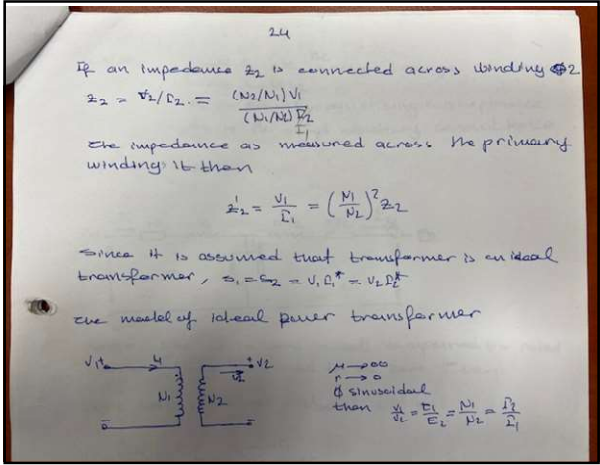 24
If an impedance Z2 is connected across winding 2
Z2 = V2/I2 = (N2/N1)V1 / (N1/N2) I1
The impedance as measured across the primary
winding is then
Z2' = V1/I1 = (N1/N2)² Z2
Since it is assumed that transformer is an ideal
transformer, S1 = S2 = V1 I1* = V2 I2*
The model of ideal power transformer
V1 + I1 N1 N2 + V2 I2
μ → ∞
r → 0
ϕ sinusoidal
then V1/V2 = E1/E2 = N1/N2 = I2/I1